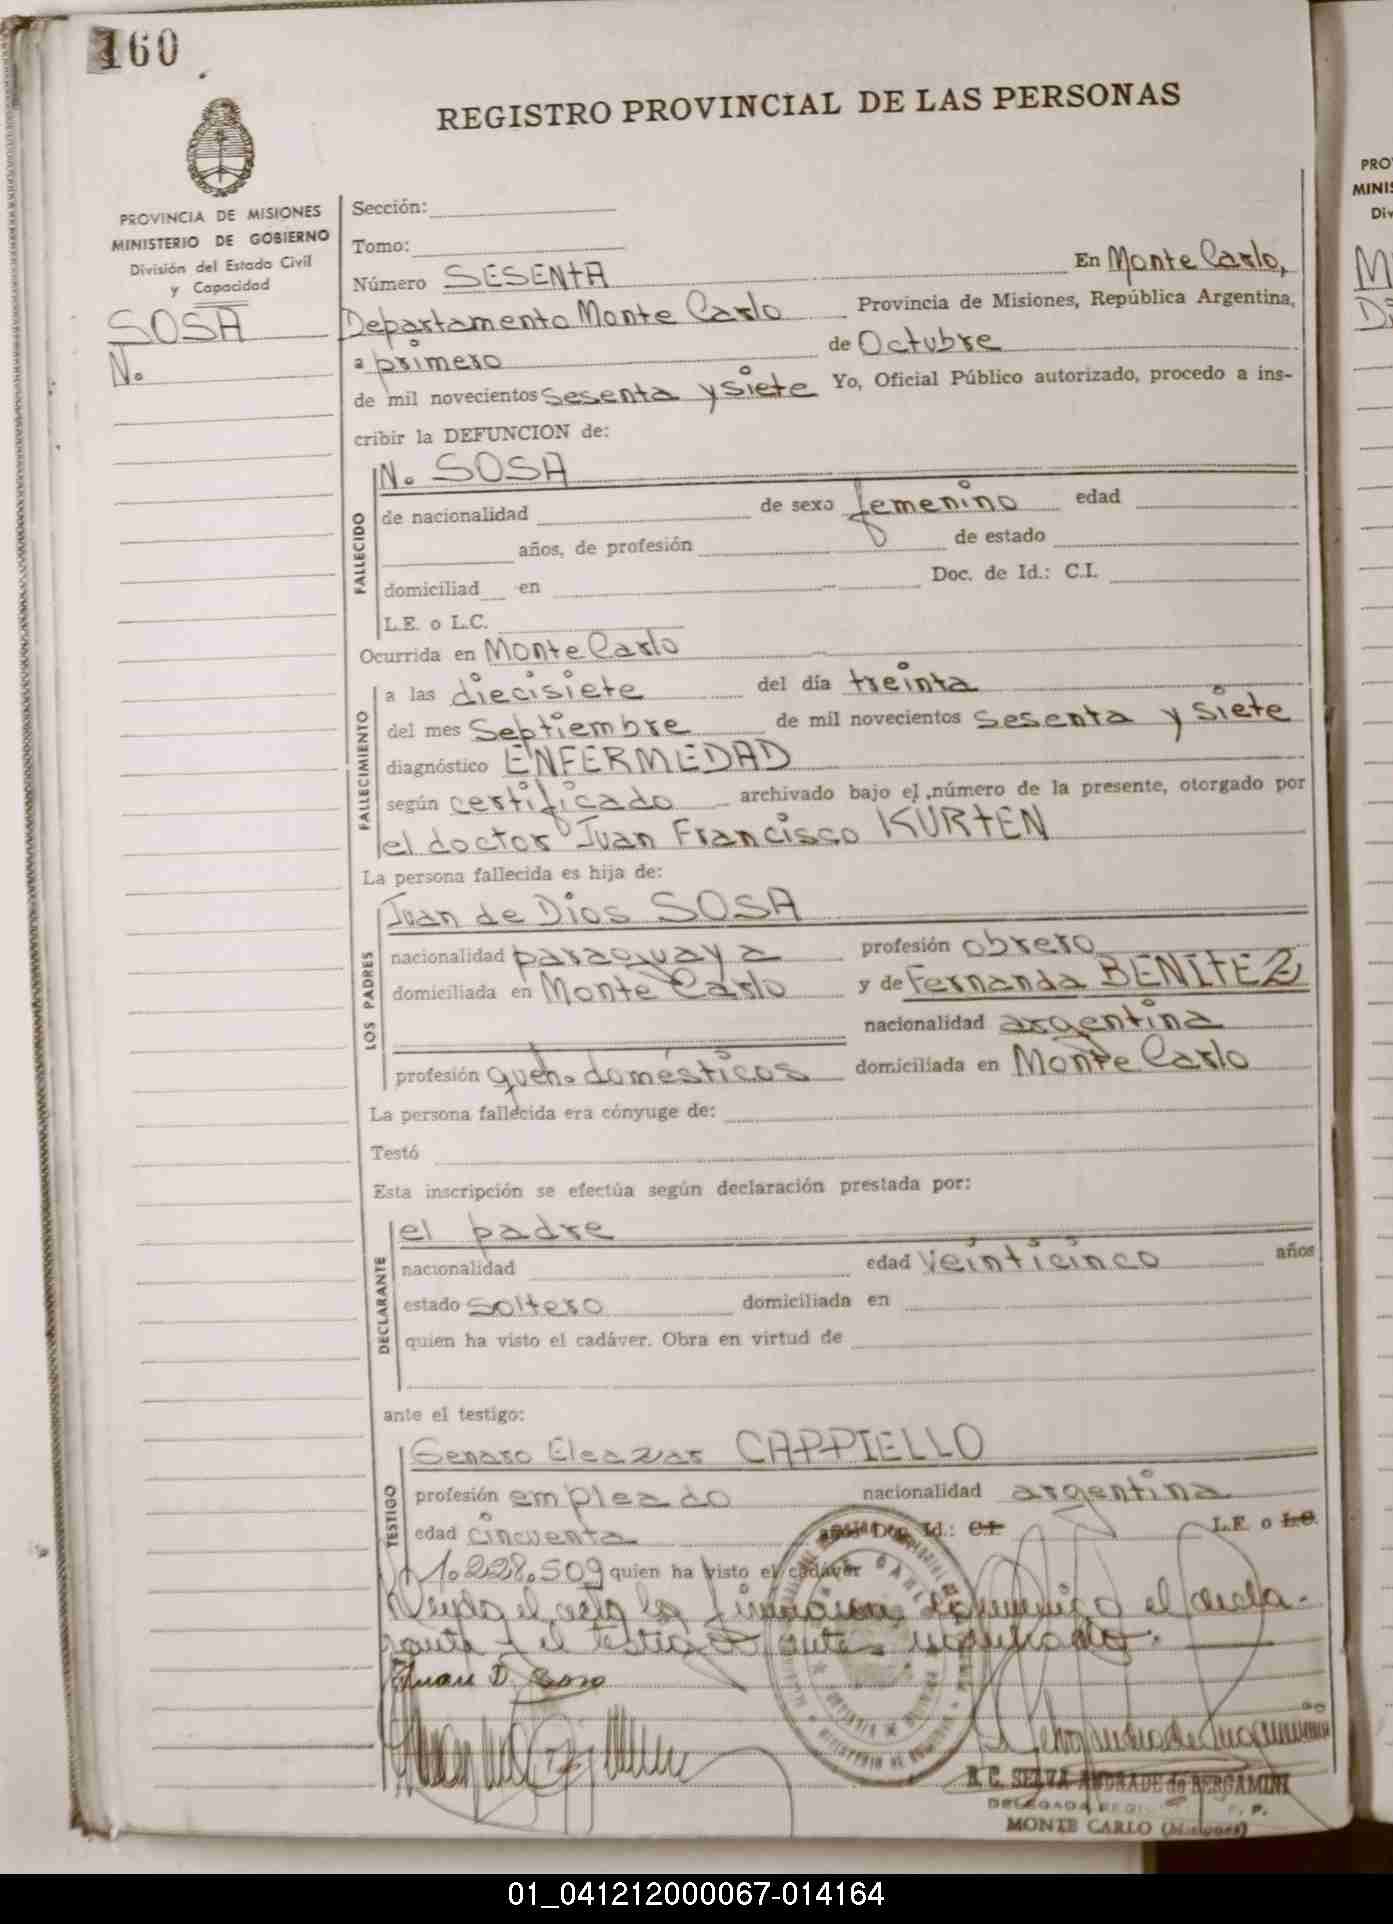 160
REGISTRO PROVINCIAL DE LAS PERSONAS
PROVINCIA DE MISIONES
MINISTERIO DE GOBIERNO
División del Estado Civil
y Capacidad
SOSA
N.
Sección:
Tomo:
Número SESENTA En Monte Carlo,
Departamento Monte Carlo Provincia de Misiones, República Argentina,
a primero de Octubre
de mil novecientos sesenta y siete Yo, Oficial Público autorizado, procedo a ins-
cribir la DEFUNCION de:
N. SOSA
FALLECIDO
de nacionalidad de sexo femenino edad
años, de profesión de estado
domiciliad en Doc. de Id.: C.I.
L.E. o L.C.
Ocurrida en Monte Carlo
FALLECIMIENTO
a las diecisiete del día treinta
del mes Septiembre de mil novecientos sesenta y siete
diagnóstico ENFERMEDAD
según certificado archivado bajo el número de la presente, otorgado por
el doctor Juan Francisco KURTEN
La persona fallecida es hija de:
LOS PADRES
Juan de Dios SOSA
nacionalidad paraguaya profesión obrero
domiciliada en Monte Carlo y de Fernanda BENITEZ
nacionalidad argentina
profesión queh. domésticos domiciliada en Monte Carlo
La persona fallecida era cónyuge de:
Testó
Esta inscripción se efectúa según declaración prestada por:
DECLARANTE
el padre
nacionalidad edad veinticinco años
estado soltero domiciliada en
quien ha visto el cadáver. Obra en virtud de
ante el testigo:
TESTIGO
Genaro Eleazar CAPPIELLO
profesión empleado nacionalidad argentina
edad cincuenta años Doc. Id.: C.I. L.E. o L.C.
1.228.509 quien ha visto el cadáver
Leída el acta la firman conmigo el decla-
rante y el testigo antes
Juan D. Soso
R. C. SELVA ANDRADE de BERGAMINI
DELEGADA
MONTE CARLO (Misiones)
PRO
MINIS
Div
01_041212000067-014164